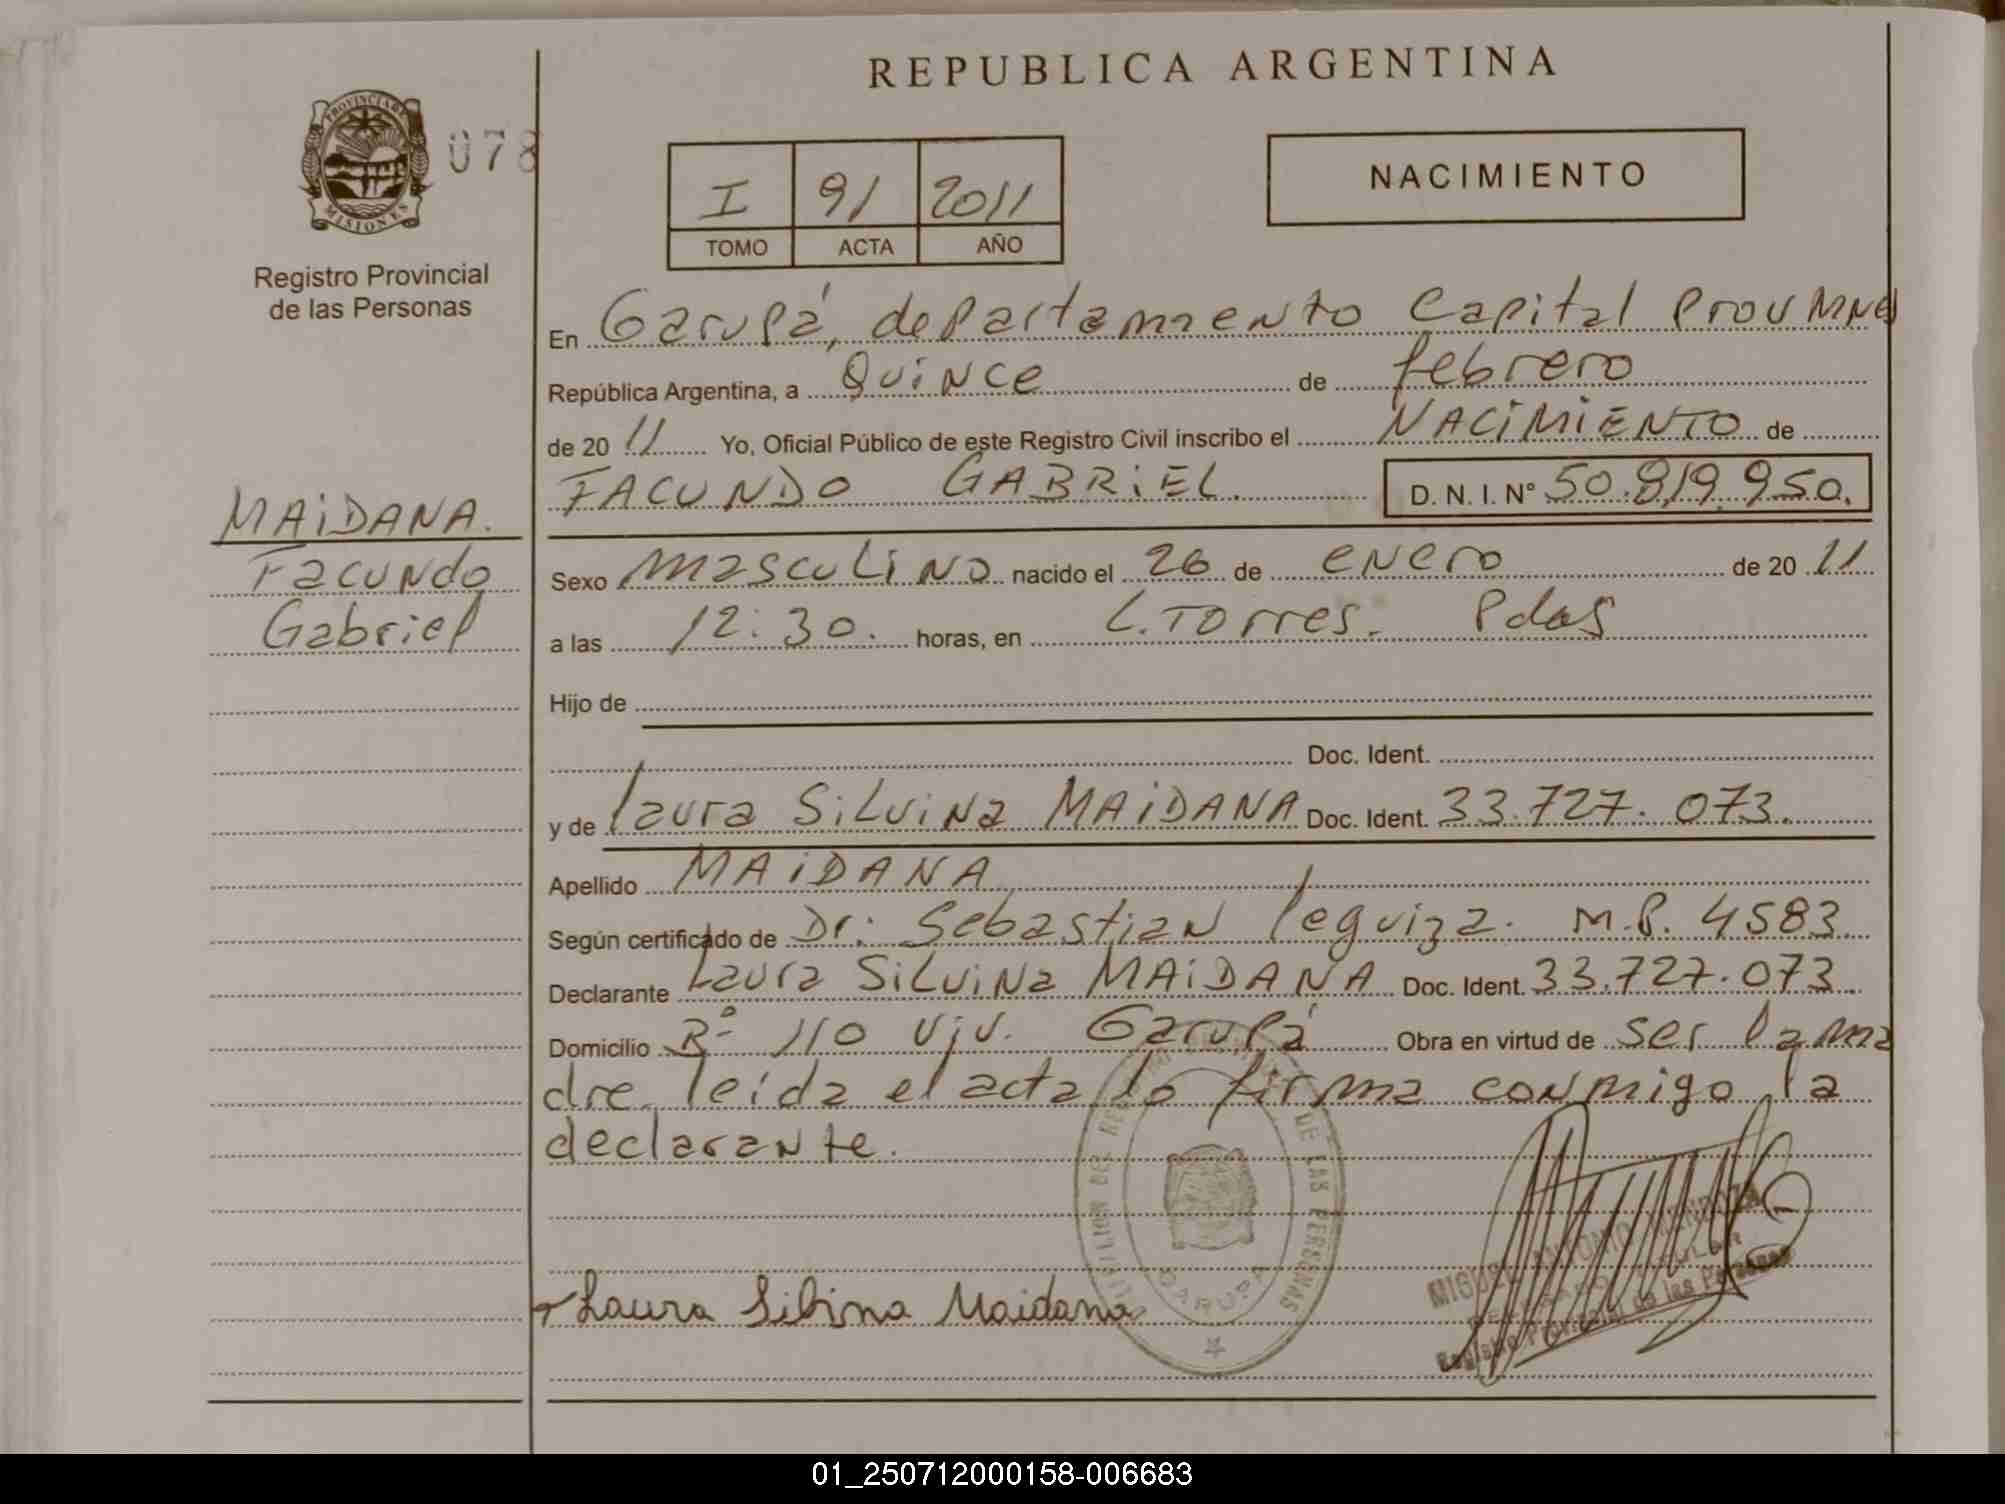 REPUBLICA ARGENTINA
PROVINCIA DE
MISIONES
078
Registro Provincial
de las Personas
I 91 2011
TOMO ACTA AÑO
NACIMIENTO
En Garupá, departamento Capital Prov Mnes
República Argentina, a Quince de febrero
de 20 11 Yo, Oficial Público de este Registro Civil inscribo el NACIMIENTO de
FACUNDO GABRIEL. D. N. I. Nº 50.819.950.
MAIDANA.
Facundo
Gabriel
Sexo masculino nacido el 26 de enero de 20 11
a las 12:30. horas, en L. Torres. Pdas
Hijo de
Doc. Ident.
y de Laura Silvina MAIDANA Doc. Ident. 33.727.073.
Apellido MAIDANA
Según certificado de Dr. Sebastian Leguiza. M.P. 4583
Declarante Laura Silvina MAIDANA Doc. Ident. 33.727.073.
Domicilio Bº 110 Viv. Garupá Obra en virtud de ser la ma
dre. leida el acta la firma conmigo la
declarante.
DE LAS PERSONAS
GARUPA
Laura Silvina Maidana
MIGUEL ANTONIO MENDOZA
Registro Provincial de las Personas
01_250712000158-006683